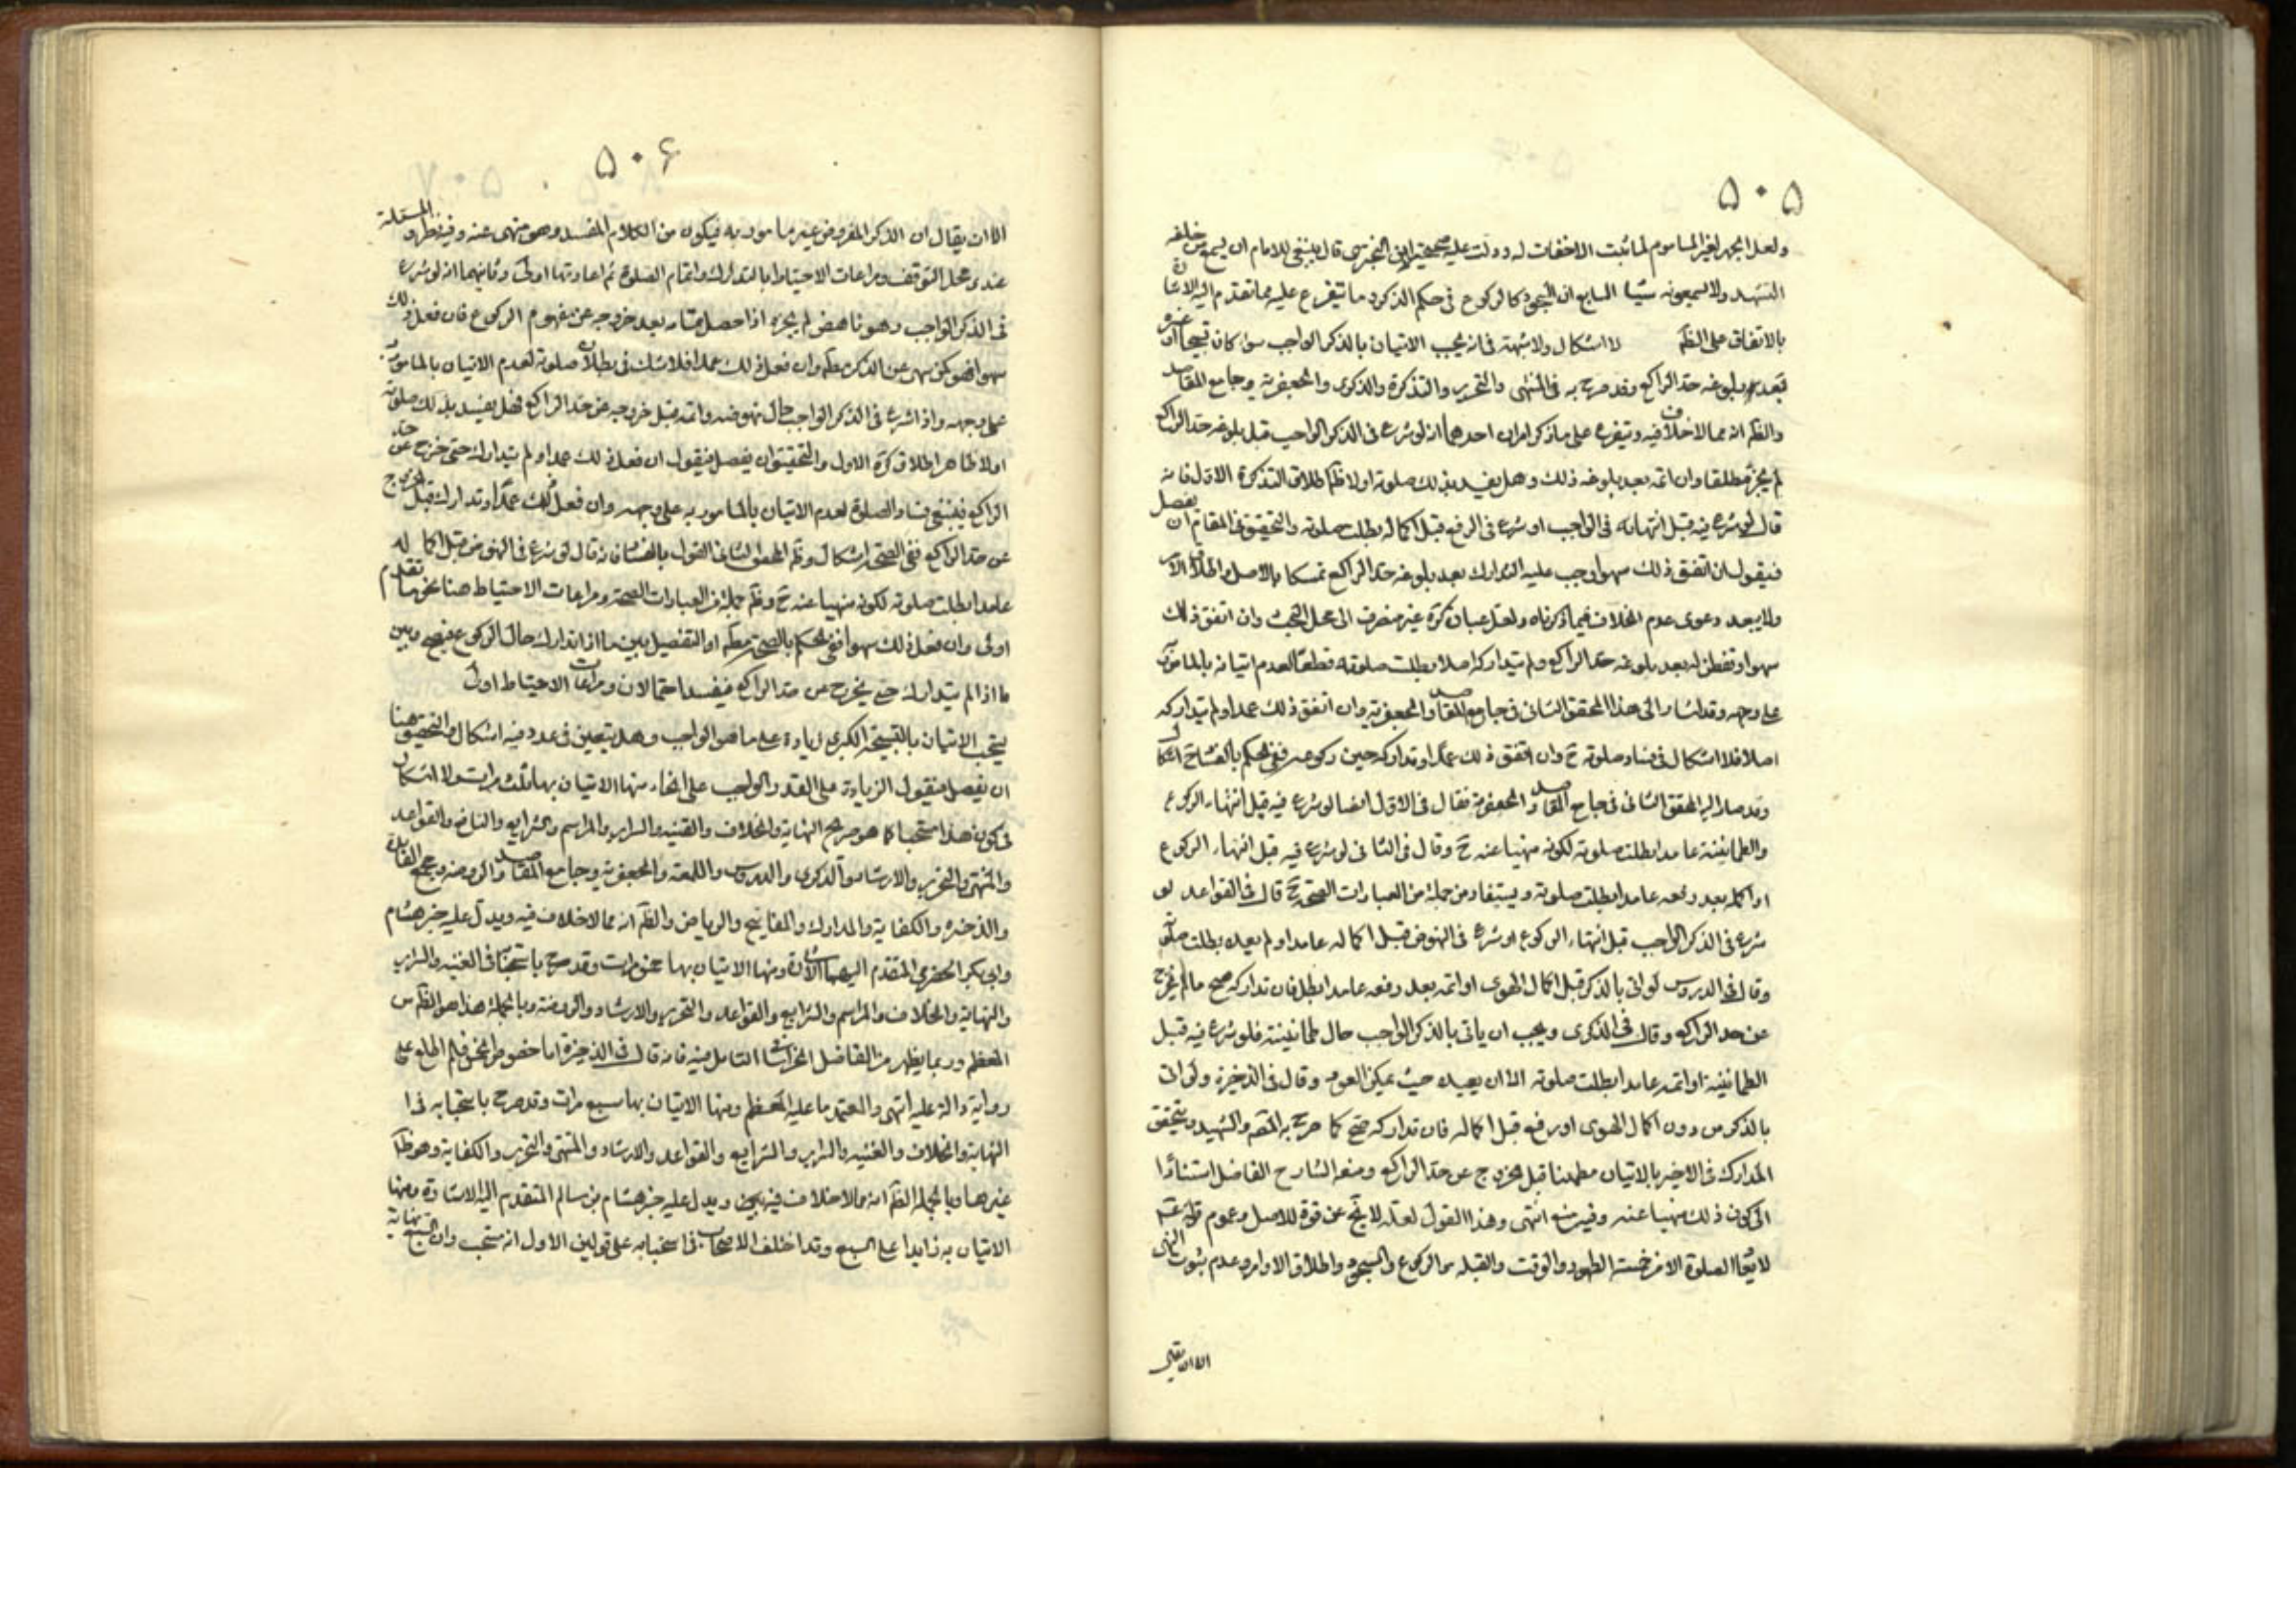 ۵۰۵
ولعل الجهر لغير الماموم لما ثبت الاخفات له ودلت عليه صحيحة ابى البخترى قال ينبغى للامام ان يسمع من خلفه
التشهد ولا يسمعونه شيئا السابع ان السجود كالركوع فى حكم الذكر وما يتفرع عليه مما تقدم اليه الاشارة
بالاتفاق على الظم لا اشكال ولا شبهة فى انه يجب الاتيان بالذكر الواجب سواء كان تسبيحا او غيره
بعد بلوغه حد الراكع وقد صرح به فى المنتهى والتحرير والتذكرة والذكرى والجعفرية وجامع المقاصد
والظم انه مما لا خلاف فيه ويتفرع على ما ذكر امران احدهما انه لو شرع فى الذكر الواجب قبل بلوغه حد الراكع
لم يجز مطلقا وان اتمه بعد بلوغه ذلك وهل يفسد بذلك صلوته اولا ظم اطلاق التذكرة الاول فانه
قال لو شرع فيه قبل انتهائه فى الواجب او شرع فى الرفع قبل اكماله بطلت صلوته والتحقيق فى المقام ان يفصل
فيقول ان اتفق ذلك سهوا وجب عليه التدارك بعد بلوغه حد الراكع تمسكا بالاصل واطلاق الامر
ولا يبعد دعوى عدم الخلاف فيما ذكرناه ولعل عبارة كره غير منصرف الى محل البحث وان اتفق ذلك
سهوا وتفطن له بعد بلوغه حد الراكع ولم يتداركه اصلا بطلت صلوته قطعا لعدم اتيانه بالمامور به
على وجهه وقد اشار الى هذا المحقق الثانى فى جامع المقاصد والجعفرية وان اتفق ذلك عمدا ولم يتداركه
اصلا فلا اشكال فى فساد صلوته ح وان اتفق ذلك عمدا وتداركه حين ركوعه ففى الحكم بالفساد ح اشكال
وقد صار اليه المحقق الثانى فى جامع المقاصد والجعفرية فقال فى الاول ايضا لو شرع فيه قبل انتهاء الركوع
والطمانينة عامدا بطلت صلوته لكونه منهيا عنه ح وقال فى الثانى لو شرع فيه قبل انتهاء الركوع
او اكمله بعد رفعه عامدا بطلت صلوته ويستفاد من جملة من العبارات الصحة ح قال فى القواعد لو
شرع فى الذكر الواجب قبل انتهاء الركوع او شرع فى النهوض قبل اكماله عامدا ولم يعد بطلت صلوته
وقال فى الدروس لو اتى بالذكر قبل اكمال الهوى او اتمه بعد رفعه عامدا بطل فان تداركه صح ما لم يخرج
عن حد الراكع وقال فى الذكرى ويجب ان ياتى بالذكر الواجب حال طمانينة فلو شرع فيه قبل
الطمانينة او اتمه عامدا بطلت صلوته الا ان يعيده حيث يمكن العود وقال فى الذخيرة ولو اتى
بالذكر من دون اكمال الهوى او رفع قبل اكماله فان تداركه صح كما صرح به المصم والشهيد ويتحقق
التدارك فى الاخير بالاتيان مطمئنا قبل الخروج عن حد الراكع ومنعه الشارح الفاضل استنادا
الى كون ذلك منهيا عنه وفيه منع انتهى وهذا القول لعله لا يخ عن قوة للاصل وعموم قوله عم
لا تعاد الصلوة الا من خمسة الطهور والوقت والقبلة والركوع والسجود واطلاق الاوامر وعدم ثبوت النهى
الا ان يقال
۵۰۶
الا ان يقال ان الذكر المفروض غير مامور به فيكون من الكلام المفسد وهو منهى عنه وفيه نظر والمسئلة
عندى محل التوقف ومراعات الاحتياط بالتدارك واتمام الصلوة ثم اعادتها اولى وثانيهما انه لو شرع
فى الذكر الواجب وهو ناهض لم يجزه اذا حصل تمامه بعد خروجه عن مفهوم الركوع فان فعل ذلك
سهوا فهو كمن سهى عن الذكر مطلم وان فعل ذلك عمدا فلا شك فى بطلان صلوته لعدم الاتيان بالمامور به
على وجهه واذا شرع فى الذكر الواجب حال نهوضه واتمه قبل خروجه عن حد الراكع فهل يفسد بذلك صلوته
اولا ظاهر اطلاق كره الاول والتحقيق ان يفصل فيقول ان فعل ذلك عمدا ولم يتداركه حتى خرج عن حد
الراكع فينبغى فساد الصلوة لعدم الاتيان بالمامور به على وجهه وان فعل ذلك عمدا وتداركه قبل الخروج
عن حد الراكع ففى الصحة اشكال وظم المحقق الثانى القول بالفساد فانه قال لو شرع فى النهوض قبل اكماله
عامدا بطلت صلوته لكونه منهيا عنه ح وظم جملة من العبارات الصحة ومراعات الاحتياط هنا نحو ما تقدم
اولى وان فعل ذلك سهوا ففى الحكم بالصحة مطلم او التفصيل بين ما اذا تدارك حال الركوع فيصح وبين
ما اذا لم يتداركه حتى يخرج عن حد الراكع فيفسد احتمالان ومراعات الاحتياط اولى
يستحب الاتيان بالتسبيحة الكبرى زيادة على ما هو الواجب وهل يتعين فى عدد فيه اشكال والتحقيق هنا
ان يفصل فيقول الزيادة على القدر الواجب على انحاء منها الاتيان بها ثلث مرات ولا اشكال
فى كون هذا مستحبا كما هو صريح النهاية والخلاف والغنية والسرائر والمراسم والشرايع والنافع والقواعد
والمنتهى والتحرير والارشاد والذكرى والدروس واللمعة والجعفرية وجامع المقاصد والروضة ومجمع الفائدة
والذخيرة والكفاية والمدارك والمفاتيح والرياض والظم انه مما لا خلاف فيه ويدل عليه خبر هشام
وابى بكر الحضرمى المتقدم اليهما الاشارة ومنها الاتيان بها خمس مرات وقد صرح باستحبابه فى الغنية والسرائر
والنهاية والخلاف والمراسم والشرايع والقواعد والتحرير والارشاد والروضة وبالجملة هذا هو الظم من
المعظم وربما يظهر من الفاضل الخراسانى التامل فيه فانه قال فى الذخيرة اما خصوص الخمس فلم اطلع على
رواية دالة عليه انتهى والمعتمد ما عليه المعظم ومنها الاتيان بها سبع مرات وقد صرح باستحبابه فى
النهاية والخلاف والغنية والسرائر والشرايع والقواعد والارشاد والمنتهى والتحرير والكفاية وهو ظم
غيرها وبالجملة الظم انه مما لا خلاف فيه بين ويدل عليه خبر هشام بن سالم المتقدم اليه الاشارة ومنها
الاتيان به زايدا على السبع وقد اختلف الاصحاب فى استحبابه على قولين الاول انه مستحب وان السبع نهاية